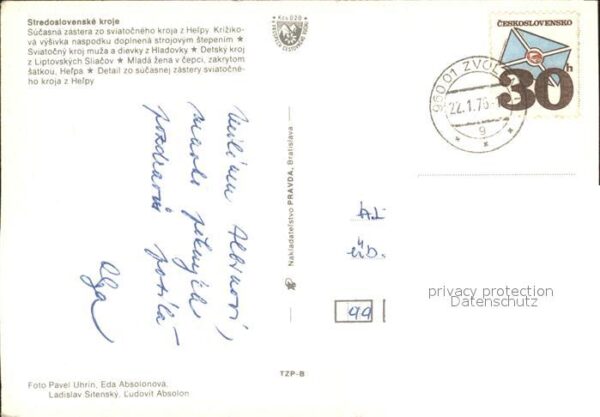 Stredoslovenské kroje
Súčasná zástera zo sviatočného kroja z Heľpy. Krížiko-
vá výšivka naspodku doplnená strojovým štepením ★
Sviatočný kroj muža a dievky z Hladovky ★ Detský kroj
z Liptovských Sliačov ★ Mladá žena v čepci, zakrytom
šatkou, Heľpa ★ Detail zo súčasnej zástery sviatočné-
ho kroja z Heľpy
Kčs 0,20
ČESKOSLOVENSKO
30h
960 01 ZVOL
22.1.76-1
g
Milému Albínovi,
mnoho pekných
pozdravov posiela
Oľga
Nakladateľstvo PRAVDA, Bratislava
TZP-B
99
privacy protection
Datenschutz
Foto Pavel Uhrin, Eda Absolonová,
Ladislav Sitenský, Ľudovít Absolon